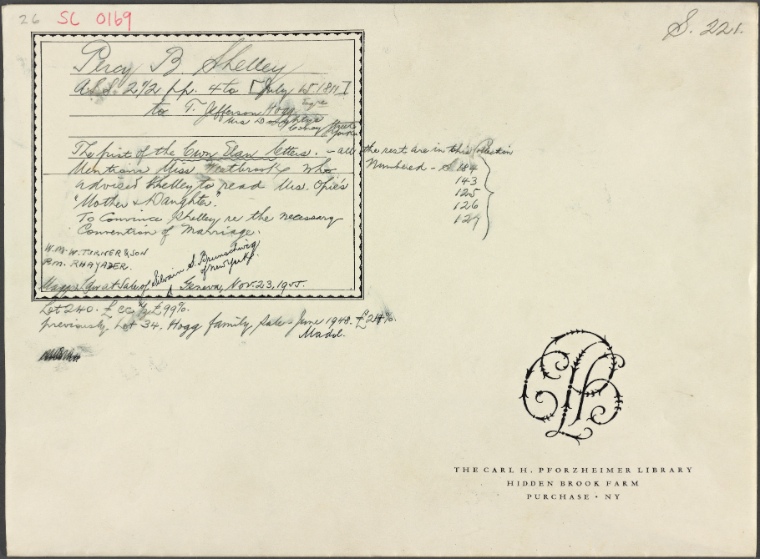 26 SC 0169
S. 221.
Percy B. Shelley
A.L.S. 2 1/2 pp. 4to [July 15 1811]
to T. Jefferson Hogg Esqre
Mrs
The first of the Cwm Elan letters. - all the rest are in this Collection
Mentions Miss Westbrook who Numbered - S. 184
advised Shelley to read Mrs. Opie's 143
"Mother & Daughter." 125
To Convince Shelley re the necessary 126
Convention of Marriage. 127
W. M. W. TURNER & SON
P.M. RHAYADER.
Maggs Sale of Silvain S. Brunschwig
of New York
Geneva, Nov. 23, 1955.
Lot 240.
previously, Lot 34. Hogg family, Sale June 1948.
CHP
THE CARL H. PFORZHEIMER LIBRARY
HIDDEN BROOK FARM
PURCHASE · NY